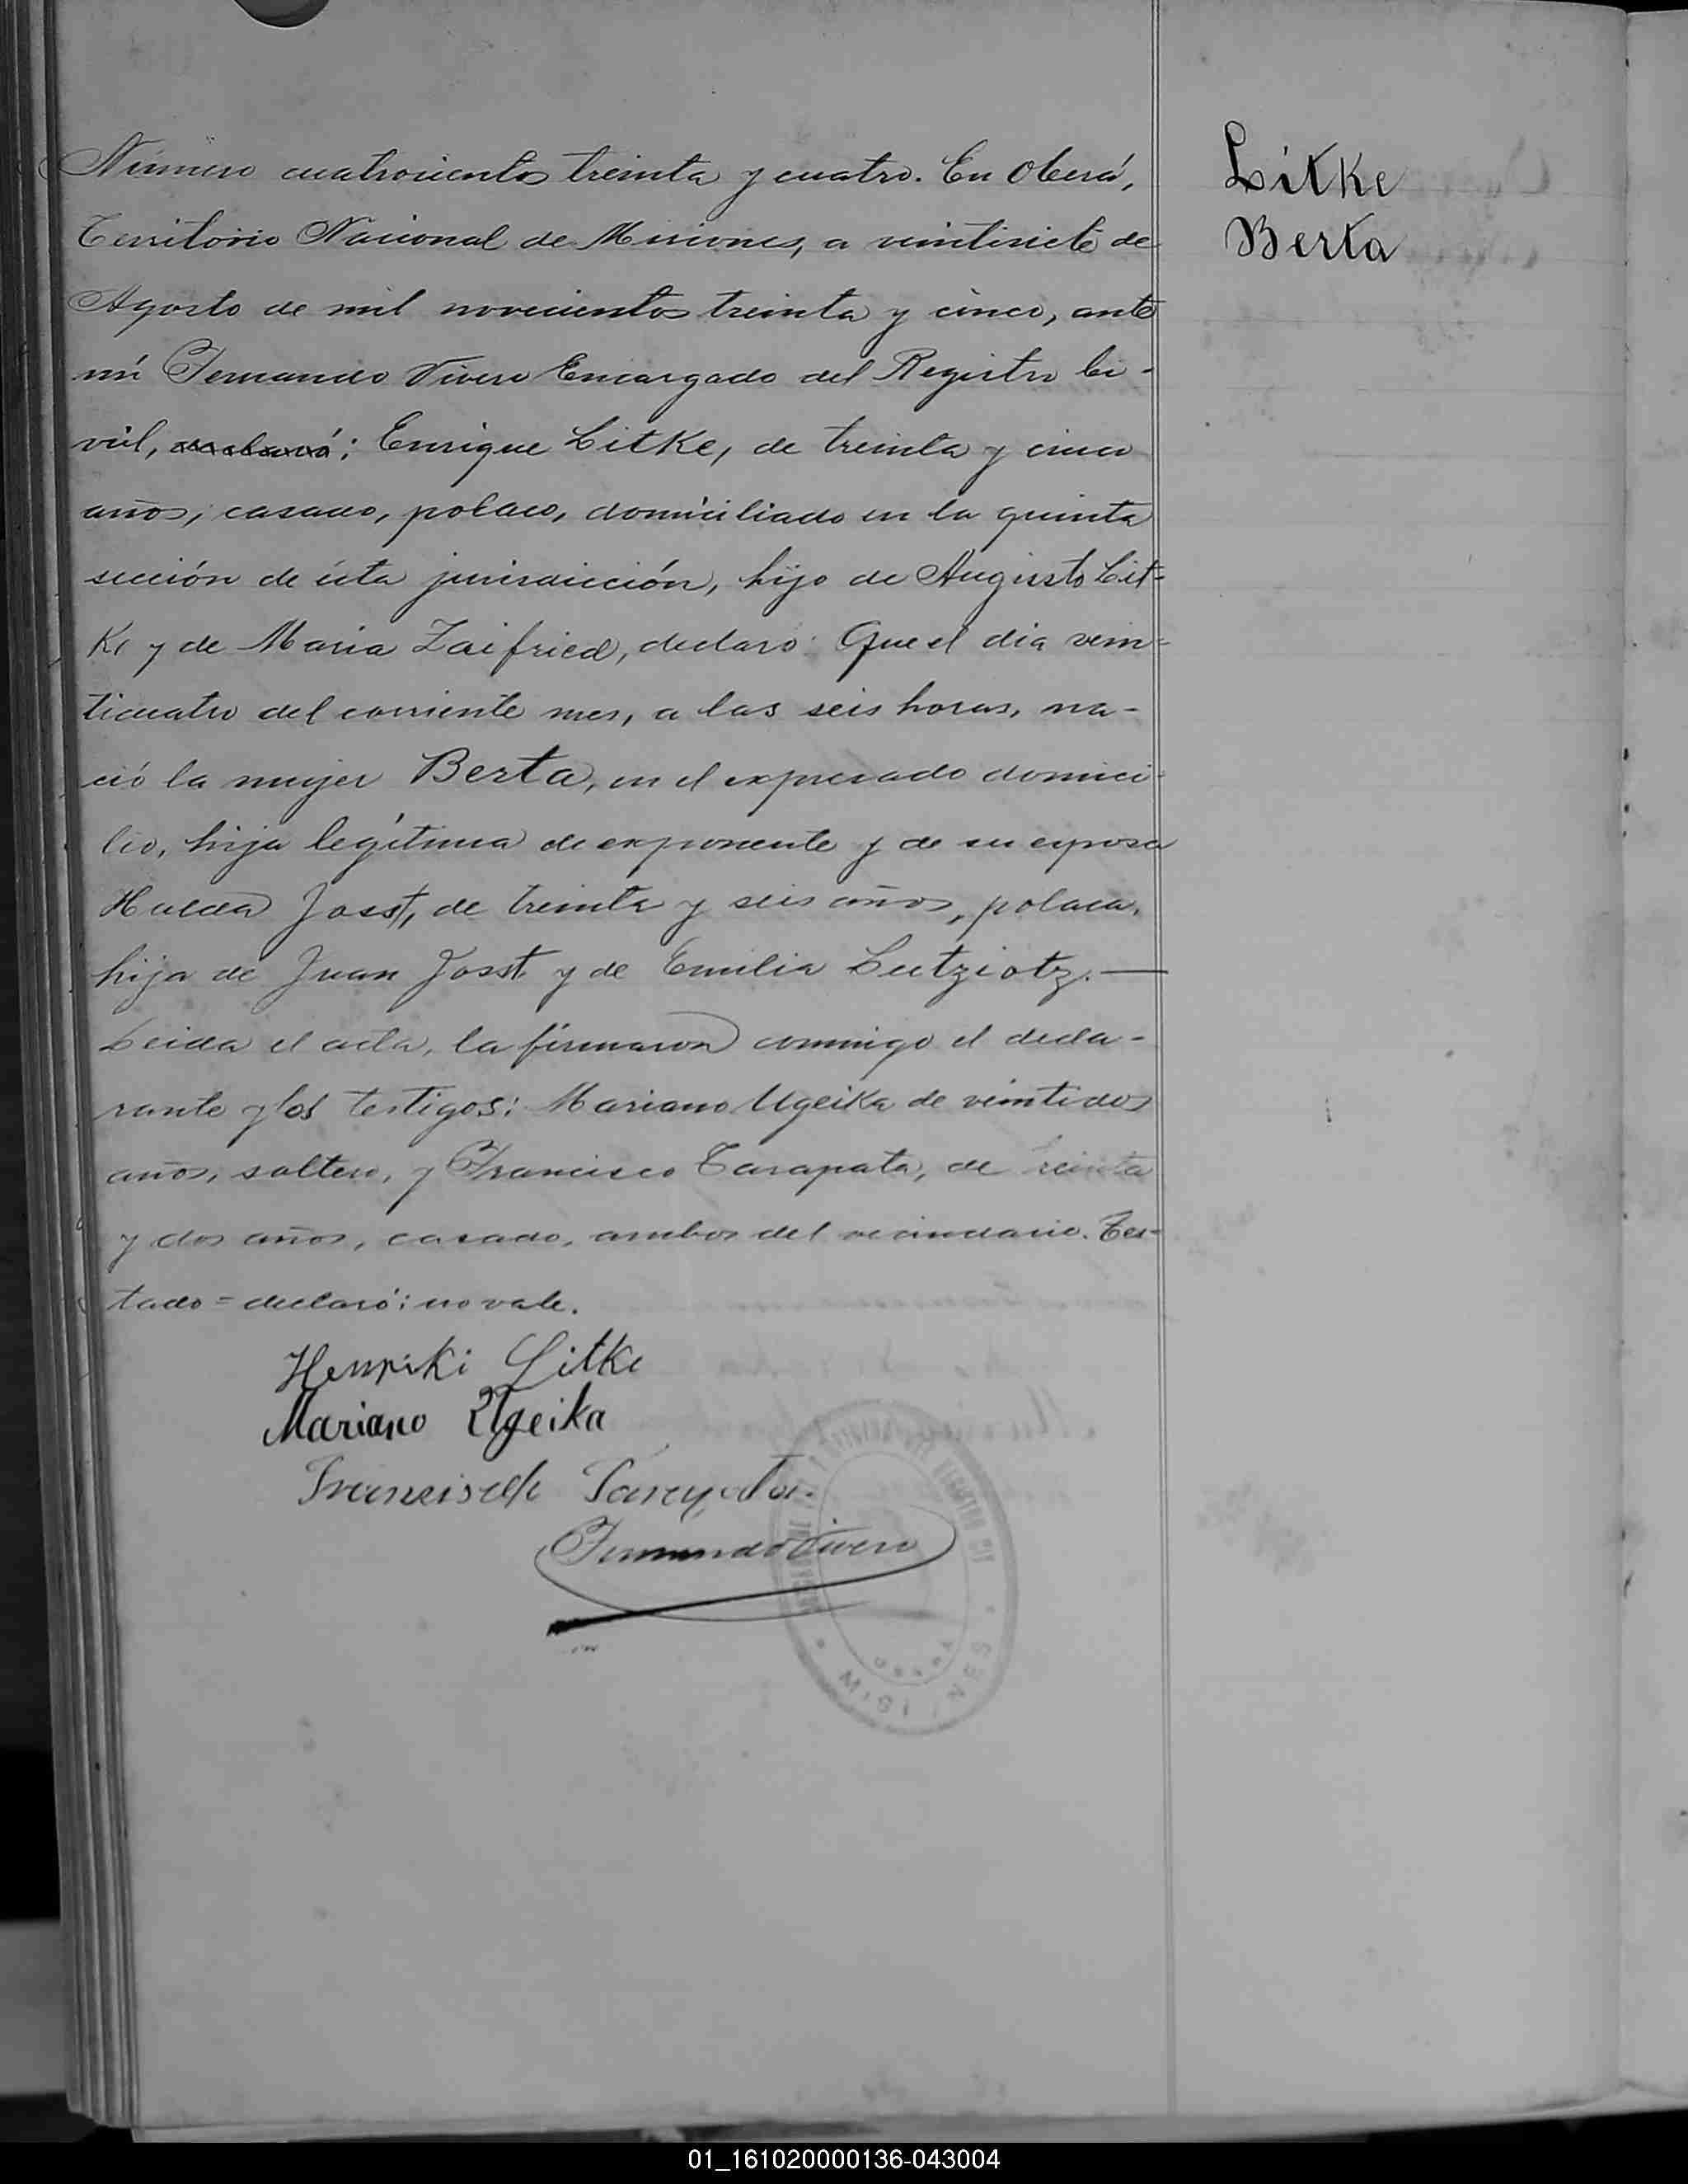 Litke
Berta
Número cuatrocientos treinta y cuatro. En Oberá,
Territorio Nacional de Misiones, a veintisiete de
Agosto de mil novecientos treinta y cinco, ante
mí Fernando Vivero Encargado del Registro Ci-
vil, declaró: Enrique Litke, de treinta y cinco
años, casado, polaco, domiciliado en la quinta
sección de ésta jurisdicción, hijo de Augusto Lit-
ke y de Maria Zaifried, declaro: Que el dia vein-
ticuatro del corriente mes, a las seis horas, na-
ció la mujer Berta, en el expresado domici-
lio, hija legítima de exponente y de su esposa
Hulda Josst, de treinta y seis años, polaca,
hija de Juan Josst y de Emilia Lutziotz.—
Leida el acta, la firmaron conmigo el decla-
rante y los testigos: Mariano Ugeika de veintidos
años, soltero, y Francisco Tarapata, de treinta
y dos años, casado, ambos del vecindario. Tes-
tado = declaró: no vale.
Henriki Litke
Mariano Ugeika
Fernando Vivero
MISIONES
01_161020000136-043004